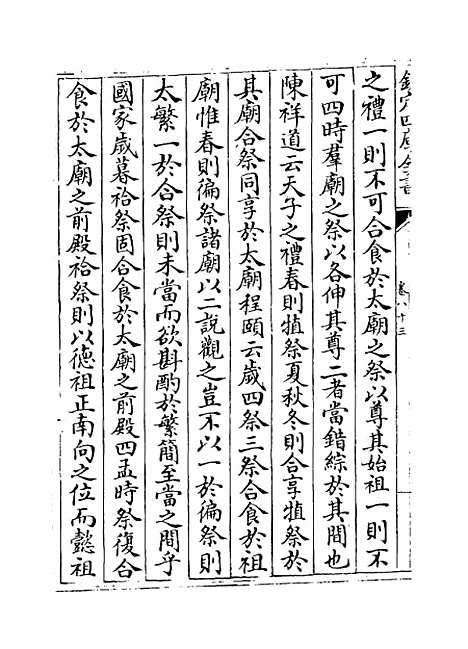 欽定四庫全書
卷八十三
之禮一則不可合食於太廟之祭以尊其始祖一則不
可四時羣廟之祭以各伸其尊二者當錯綜於其間也
陳祥道云天子之禮春則犆祭夏秋冬則合享犆祭於
其廟合祭同享於太廟程頤云歲四祭三祭合食於祖
廟惟春則徧祭諸廟以二說觀之豈不以一於徧祭則
太繁一於合祭則未當而欲斟酌於繁簡至當之間乎
國家歲暮祫祭固合食於太廟之前殿四孟時祭復合
食於太廟之前殿祫祭則以德祖正南向之位而懿祖